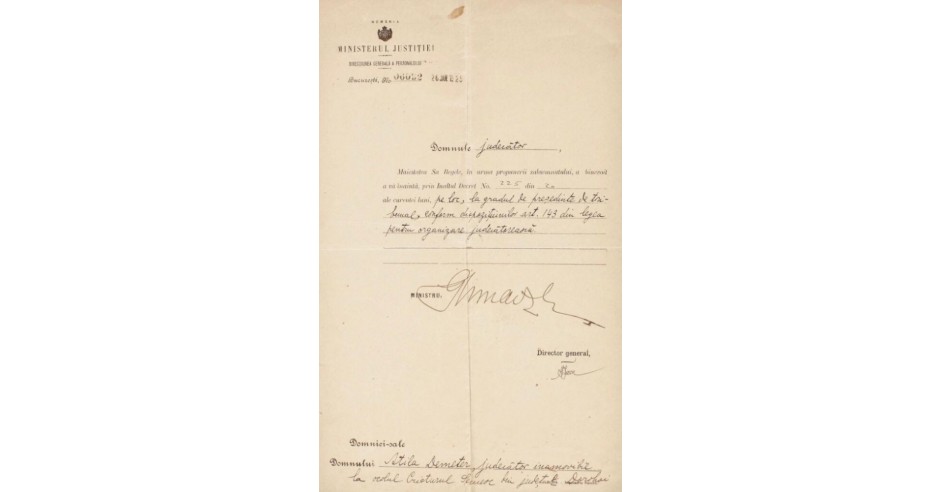 ROMÂNIA
MINISTERUL JUSTIȚIEI
DIRECȚIUNEA GENERALĂ A PERSONALULUI
București, No. 06022
Domnule judecător,
Maiestatea Sa Regele, în urma propunerii subsemnatului, a binevoit
a vă înainta, prin Înaltul Decret No. 225 din
ale curentei luni, pe loc, la gradul de președinte de tri-
bunal, conform dispozițiunilor art. 143 din legea
pentru organizare judecătorească
MINISTRU,
Director general,
Domniei-sale
Domnului Atila Demeter, judecător inamovibil
la ocolul Cristurul din județul